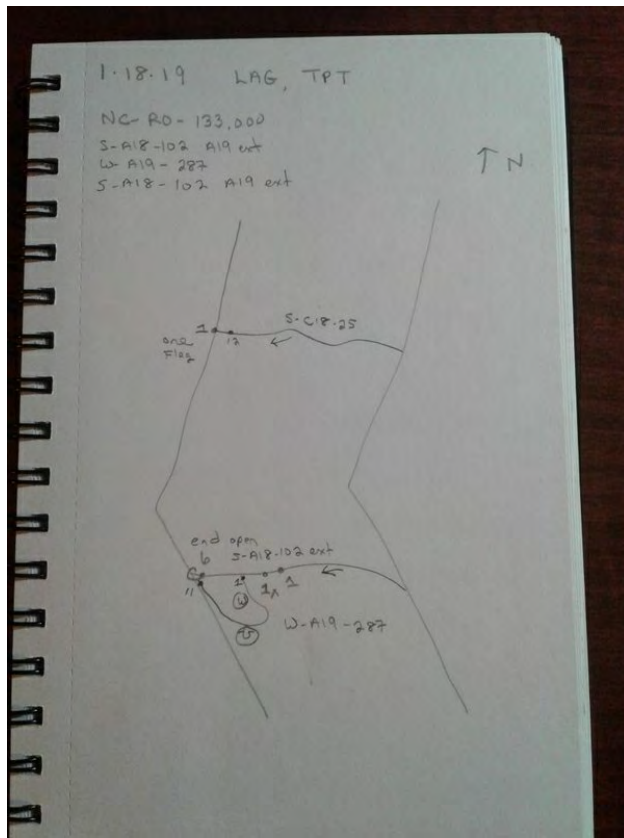 1-18-19 LAG, TPT
NC-RO-133,000
S-A18-102 A19 ext
W-A19-287
S-A18-102 A19 ext
↑ N
S-C18-25
1
12
one
Flag
end open
6 S-A18-102 ext
11
1
1A
1
W
W-A19-287